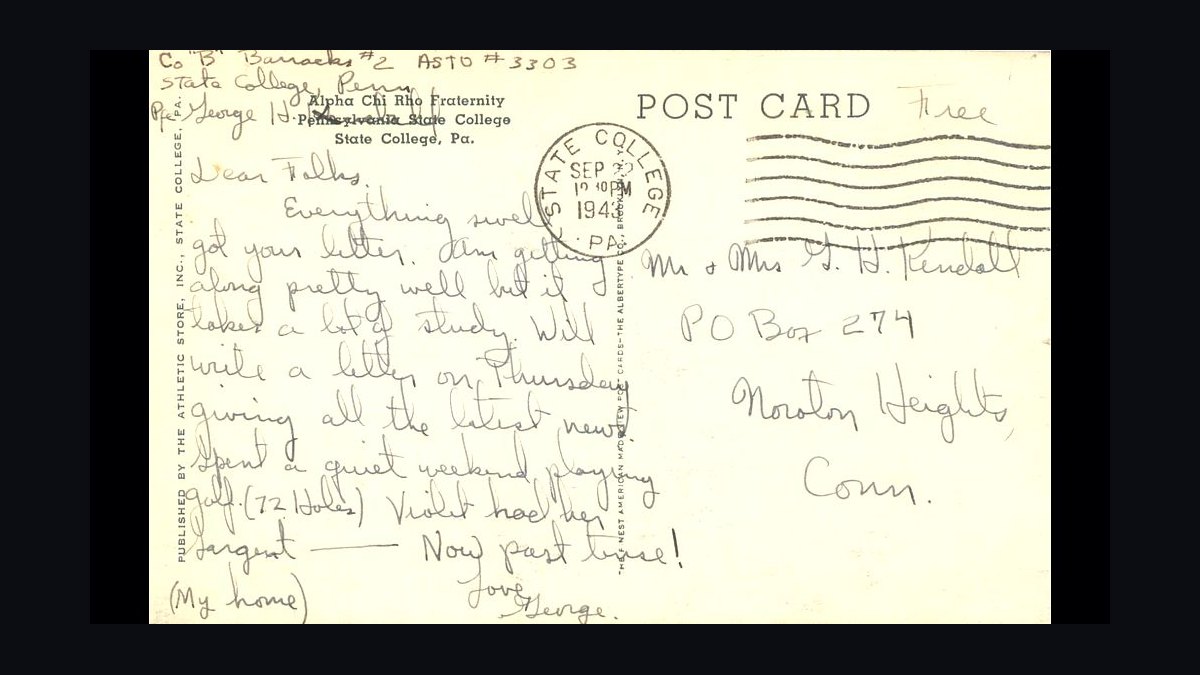 Co "B" Barracks #2 ASTU #3303
State College, Penn
Pfc George H.
Alpha Chi Rho Fraternity
Pennsylvania State College
State College, Pa.
POST CARD
Free
STATE COLLEGE
SEP
PM
1943
PA.
Dear Folks,
Everything swell
got your letter. Am getting
along pretty well but it
takes a lot of study. Will
write a letter on Thursday
giving all the latest news.
Spent a quiet weekend playing
golf. (72 Holes) Violet had her
Sargent — Now past tense!
Love
George.
(My home)
Mr & Mrs G. H. Kendall
PO Box 274
Noroton Heights,
Conn.
PUBLISHED BY THE ATHLETIC STORE, INC., STATE COLLEGE, PA.
AMERICAN MADE VIEW POST CARDS—THE ALBERTYPE CO., BROOKLYN, N.Y.